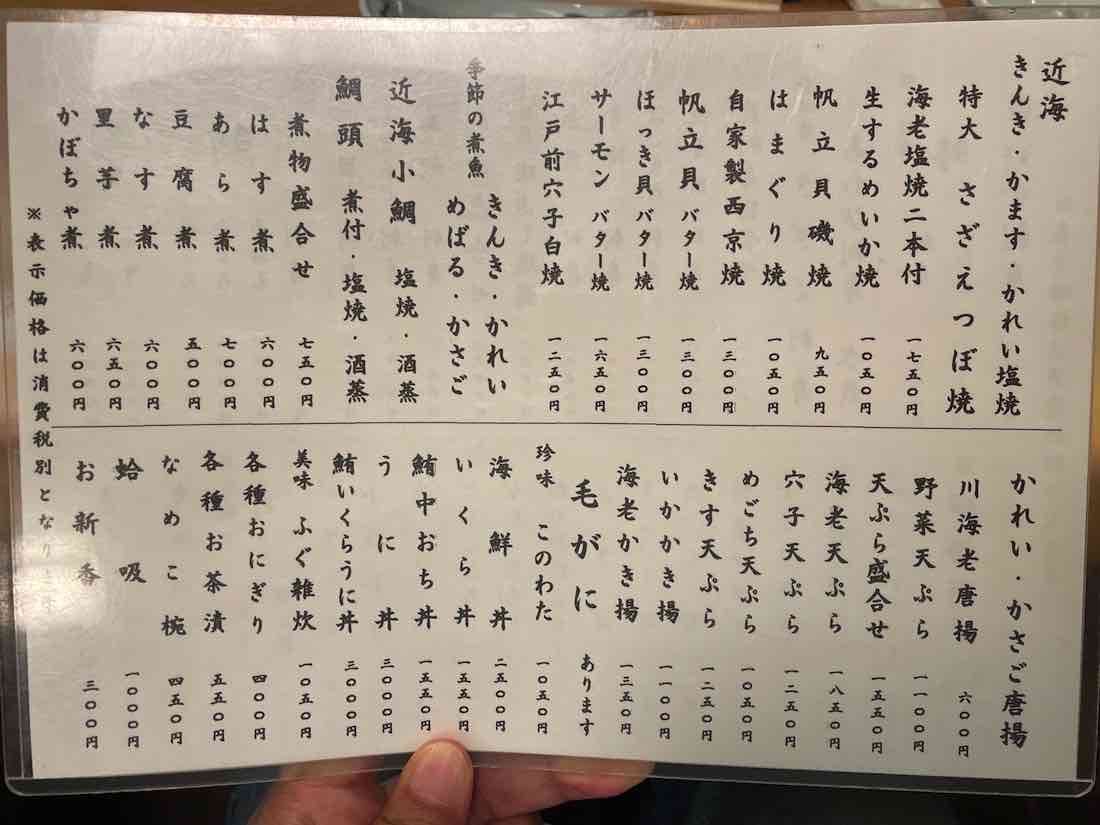 近海
きんき・かます・かれい塩焼
特大 さざえつぼ焼
海老塩焼二本付 一七五〇円
生するめいか焼 一〇五〇円
帆立貝磯焼 九五〇円
はまぐり焼 一〇五〇円
自家製西京焼 一三〇〇円
帆立貝バター焼 一三〇〇円
ほっき貝バター焼 一三〇〇円
サーモンバター焼 一六五〇円
江戸前穴子白焼 一二五〇円
季節の煮魚
きんき・かれい
めばる・かさご
近海小鯛 塩焼・酒蒸
鯛頭 煮付・塩焼・酒蒸
煮物盛合せ 七五〇円
はす煮 六〇〇円
あら煮 七〇〇円
豆腐煮 五〇〇円
なす煮 六〇〇円
里芋煮 六五〇円
かぼちゃ煮 六〇〇円
※表示価格は消費税別となり
かれい・かさご唐揚
川海老唐揚 六〇〇円
野菜天ぷら 一一〇〇円
天ぷら盛合せ 一五五〇円
海老天ぷら 一八五〇円
穴子天ぷら 一二五〇円
めごち天ぷら 一〇五〇円
きす天ぷら 一二五〇円
いかかき揚 一一〇〇円
海老かき揚 一三五〇円
毛がに あります
珍味 このわた 一〇五〇円
海鮮丼 二五〇〇円
いくら丼 一五五〇円
鮪中おち丼 一五五〇円
うに丼 三〇〇〇円
鮪いくらうに丼 三〇〇〇円
美味 ふぐ雑炊 一〇五〇円
各種おにぎり 四〇〇円
各種お茶漬 五五〇円
なめこ椀 四五〇円
蛤吸 一〇〇〇円
お新香 三〇〇円